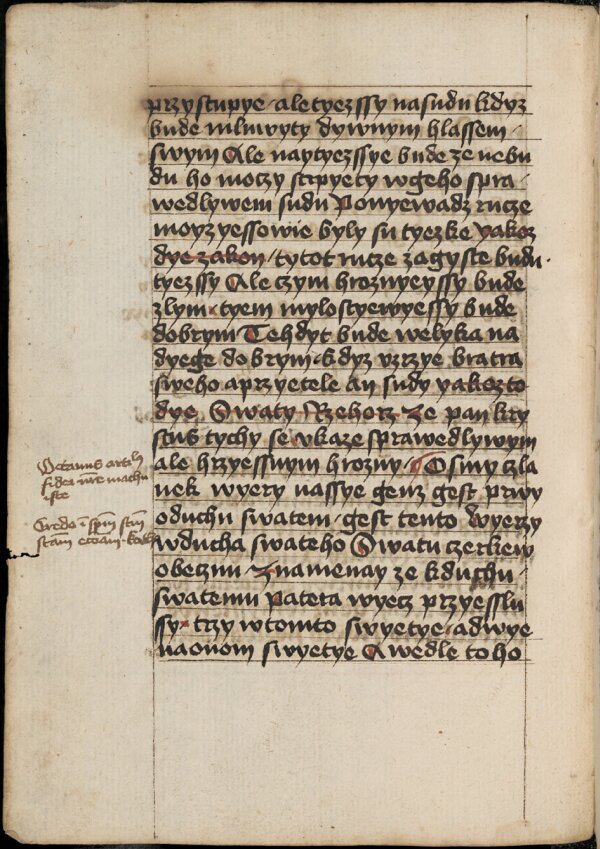 przystupye · ale tyezssy na sudu kdyz
bude mluwyty dywnym hlassem
swym Ale naytyezssye bude ze nebu
du ho moczy strpyety w geho spra
wedlywem sudu Ponyewadz rucze
moyzyessowie byly su tyezke yakoz
dye zakon / tytot rucze zagyste budu
tyezssy Ale czym hroznyeyssy bude
zlym · tyem mylostyewyessy bude
dobrym Tehdyt bude welyka na
dyege dobrym · kdyz vzrzye bratra
sweho a przyetele an sudy yakozto
dye Swaty Rzehorz Ze pan kry
stus tychy se vkaze sprawedlywym
ale hrzyessnym hrozny / Osmy czla
nek wyery nassye genz gest prwy
o duchu swatem / gest tento Wyerzy
w ducha swateho Swatu czerkew
obecznu Znamenay ze k duchu
swatemu pateta wyecz przyesslu
ssy · trzy w tomto swyetye · a dwye
na onom swyetye A wedle toho
Octauus
fidei
iste
Credo i spm stm